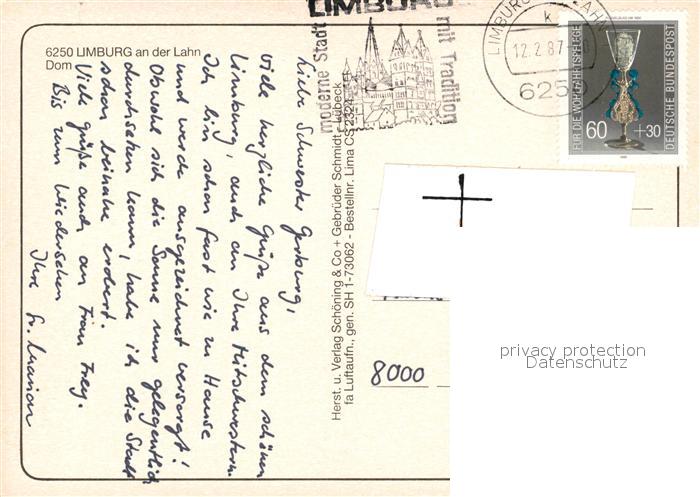 6250 LIMBURG an der Lahn
Dom
LIMBURG
moderne Stadt
mit Tradition
LIMBURG LAHN
k
12.2.87
6250
FÜR DIE WOHLFAHRTSPFLEGE
60 +30
DEUTSCHE BUNDESPOST
Liebe Schwester Gerburg,
viele herzliche Grüße aus dem schönen
Limburg, auch an Ihre Mitschwestern.
Ich bin schon fast wie zu Hause
und werde ausgezeichnet versorgt!
Obwohl sich die Sonne nur gelegentlich
durchsetzen kann, habe ich die Stadt
schon beinahe erobert.
Viele Grüße auch an Frau Frey.
Bis zum Wiedersehen
Ihre Sr. Marion
Herst. u. Verlag Schöning & Co + Gebrüder Schmidt, Lübeck
fa Luftaufn., gen. SH 1-73062 - Bestellnr. Lima CS 2324
8000
privacy protection
Datenschutz